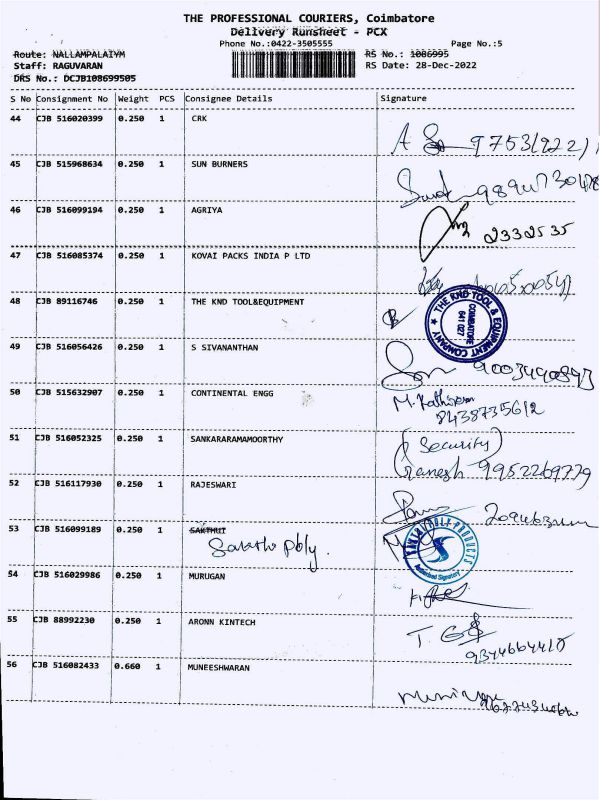 THE PROFESSIONAL COURIERS, Coimbatore
Delivery Runsheet - PCX
Phone No.:0422-3505555 Page No.:5
Route: NALLAMPALAIYM RS No.: 1086995
Staff: RAGUVARAN RS Date: 28-Dec-2022
DRS No.: DCJB108699505
S No Consignment No Weight PCS Consignee Details Signature
44 CJB 516020399 0.250 1 CRK
45 CJB 515968634 0.250 1 SUN BURNERS
46 CJB 516099194 0.250 1 AGRIYA
2332535
47 CJB 516085374 0.250 1 KOVAI PACKS INDIA P LTD
48 CJB 89116746 0.250 1 THE KND TOOL&EQUIPMENT
THE KND TOOL & EQUIPMENT COMPANY
COIMBATORE
641 027
49 CJB 516056426 0.250 1 S SIVANANTHAN
50 CJB 515632907 0.250 1 CONTINENTAL ENGG
8438735612
51 CJB 516052325 0.250 1 SANKARARAMAMOORTHY
(Security)
Ganesh 9952269779
52 CJB 516117930 0.250 1 RAJESWARI
53 CJB 516099189 0.250 1 SAKTHUT
Sakthi Poly.
Authorised Signatory
54 CJB 516029986 0.250 1 MURUGAN
55 CJB 88992230 0.250 1 ARONN KINTECH
56 CJB 516082433 0.660 1 MUNEESHWARAN